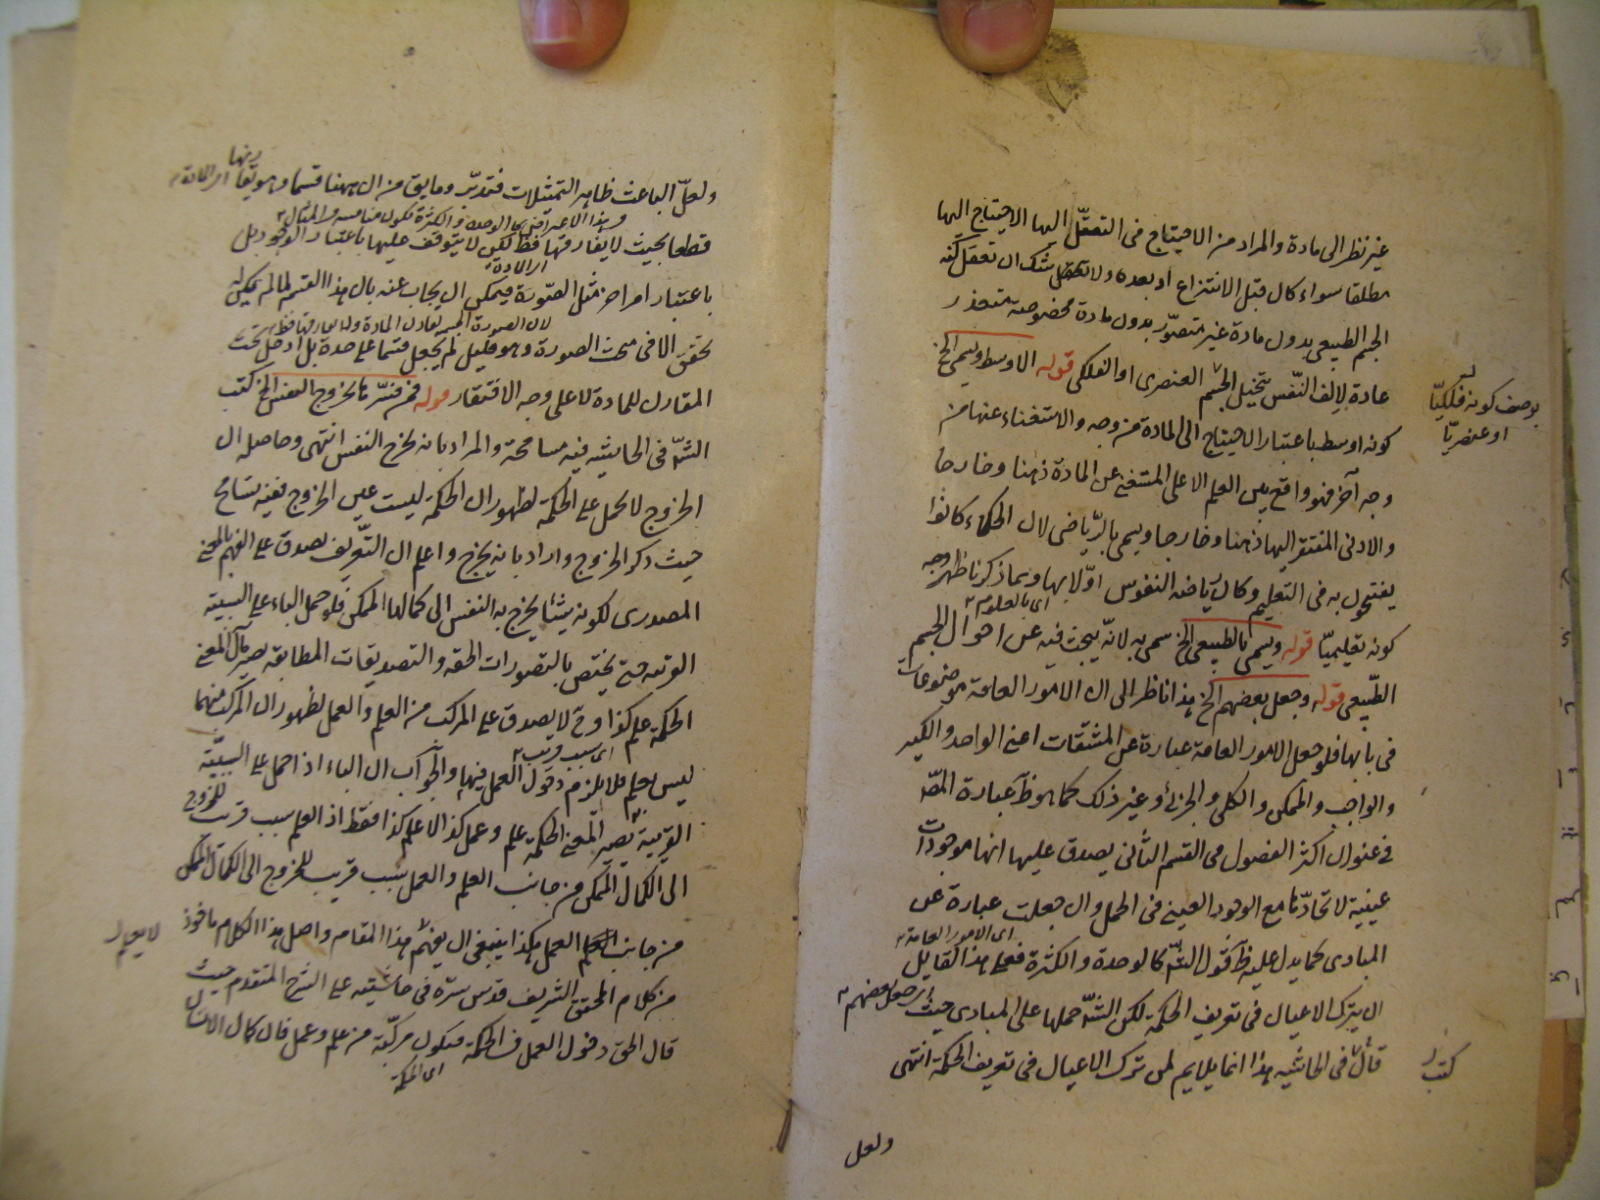 غير نظر الى مادة والمراد من الاحتياج فى التعقل اليها الاحتياج اليها
مطلقا سواء كان قبل الانتزاع او بعده ولا شك ان تعقل كنه
الجسم الطبيعى بدون مادة غير متصور بدون مادة مخصوصة متعذر
عادة لالف النفس بتخيل الجسم العنصرى او الفلكى قوله الاوسط ويسمى الخ
بوصف كونه فلكيا
او عنصريا
كونه اوسط باعتبار الاحتياج الى المادة من وجه والاستغناء عنها من
وجه آخر فهو واقع بين العلم الاعلى المستغنى عن المادة ذهنا وخارجا
والادنى المفتقر اليها ذهنا وخارجا ويسمى بالرياضى لان الحكماء كانوا
يفتتحون به فى التعليم وكان رياضة النفوس اولا بها وبما ذكرنا ظهر وجه
اى بالعلوم
كونه تعليميا قوله ويسمى بالطبيعى الخ سمى به لانه يبحث فيه عن احوال الجسم
الطبيعى قوله وجعل بعضهم الخ هذا ناظر الى ان الامور العامة موضوعات
فى بابها فلو جعل الامور العامة عبارة عن المشتقات اعنى الواحد والكثير
والواجب والممكن والكلى والجزئى وغير ذلك كما هو ظ عبارة المص
فى عنوان اكثر الفصول من القسم الثانى يصدق عليها انها موجودات
عينية لاتحادها مع الوجود العينى فى الحمل وان جعلت عبارة عن
اى الامور العامة
المبادى كما يدل عليه ظ قول الش كالوحدة والكثرة فعلى هذا القايل
ان يترك الاعيان فى تعريف الحكمة لكن الش حملها على المبادى حيث
اى جعل بعضهم
قال فى الحاشية هذا انما يلايم لمن ترك الاعيان فى تعريف الحكمة انتهى
كتب
ولعل
ولعل الباعث ظاهر التمثيلات فتدبر وما يق من ان ههنا قسما
قطعا بحيث لا يفارقها فقط لكن لا يتوقف عليها باعتبار الوجود بل
اى المادة
باعتبار امر اخر مثل الصورة فيمكن ان يجاب عنه بان هذا القسم لما لم يكن له
لان الصورة الجسمية تقارن المادة ولا تفارقها قط
تحقق الا فى مبحث الصورة وهو قليل لم يجعل قسما على حدة بل ادخل تحت
المقارن للمادة لا على وجه الافتقار قوله فمن فسرها بخروج النفس الخ كتب
الش فى الحاشية فيه مسامحة والمراد بها ما يخرج النفس انتهى وحاصله ان
الخروج لا يحمل على الحكمة لظهور ان الحكمة ليست عين الخروج ففيه تسامح
حيث ذكر الخروج واراد ما به يخرج واعلم ان التعريف يصدق على الفهم بالمعنى
المصدرى لكونه شيئا يخرج به النفس الى كمالها الممكن فلو حمل الباء على السببية
القريبة حتى يختص بالتصورات الحقة والتصديقات المطابقة يصير مآل المعنى
الحكمة علم كذا وح لا يصدق على المركب من العلم والعمل لظهور ان المركب منهما
اى سبب قريب
ليس بعلم فلا يلزم دخول العمل فيها والجواب ان الباء اذا حمل على السببية
القريبة يصير المعنى الحكمة علم وعمل كذا لا علم كذا فقط اذ العلم سبب قريب للخروج
الى الكمال الممكن من جانب العلم والعمل سبب قريب للخروج الى الكمال الممكن
من جانب العمل هكذا ينبغى ان يفهم هذا المقام واصل هذا الكلام ماخوذ
من كلام المحقق الشريف قدس سره فى حاشيته على الشرح المتقدم حيث
قال الحق دخول العمل فى الحكمة فيكون مركبة من علم وعمل فان كمال الانسان
اى الحكمة